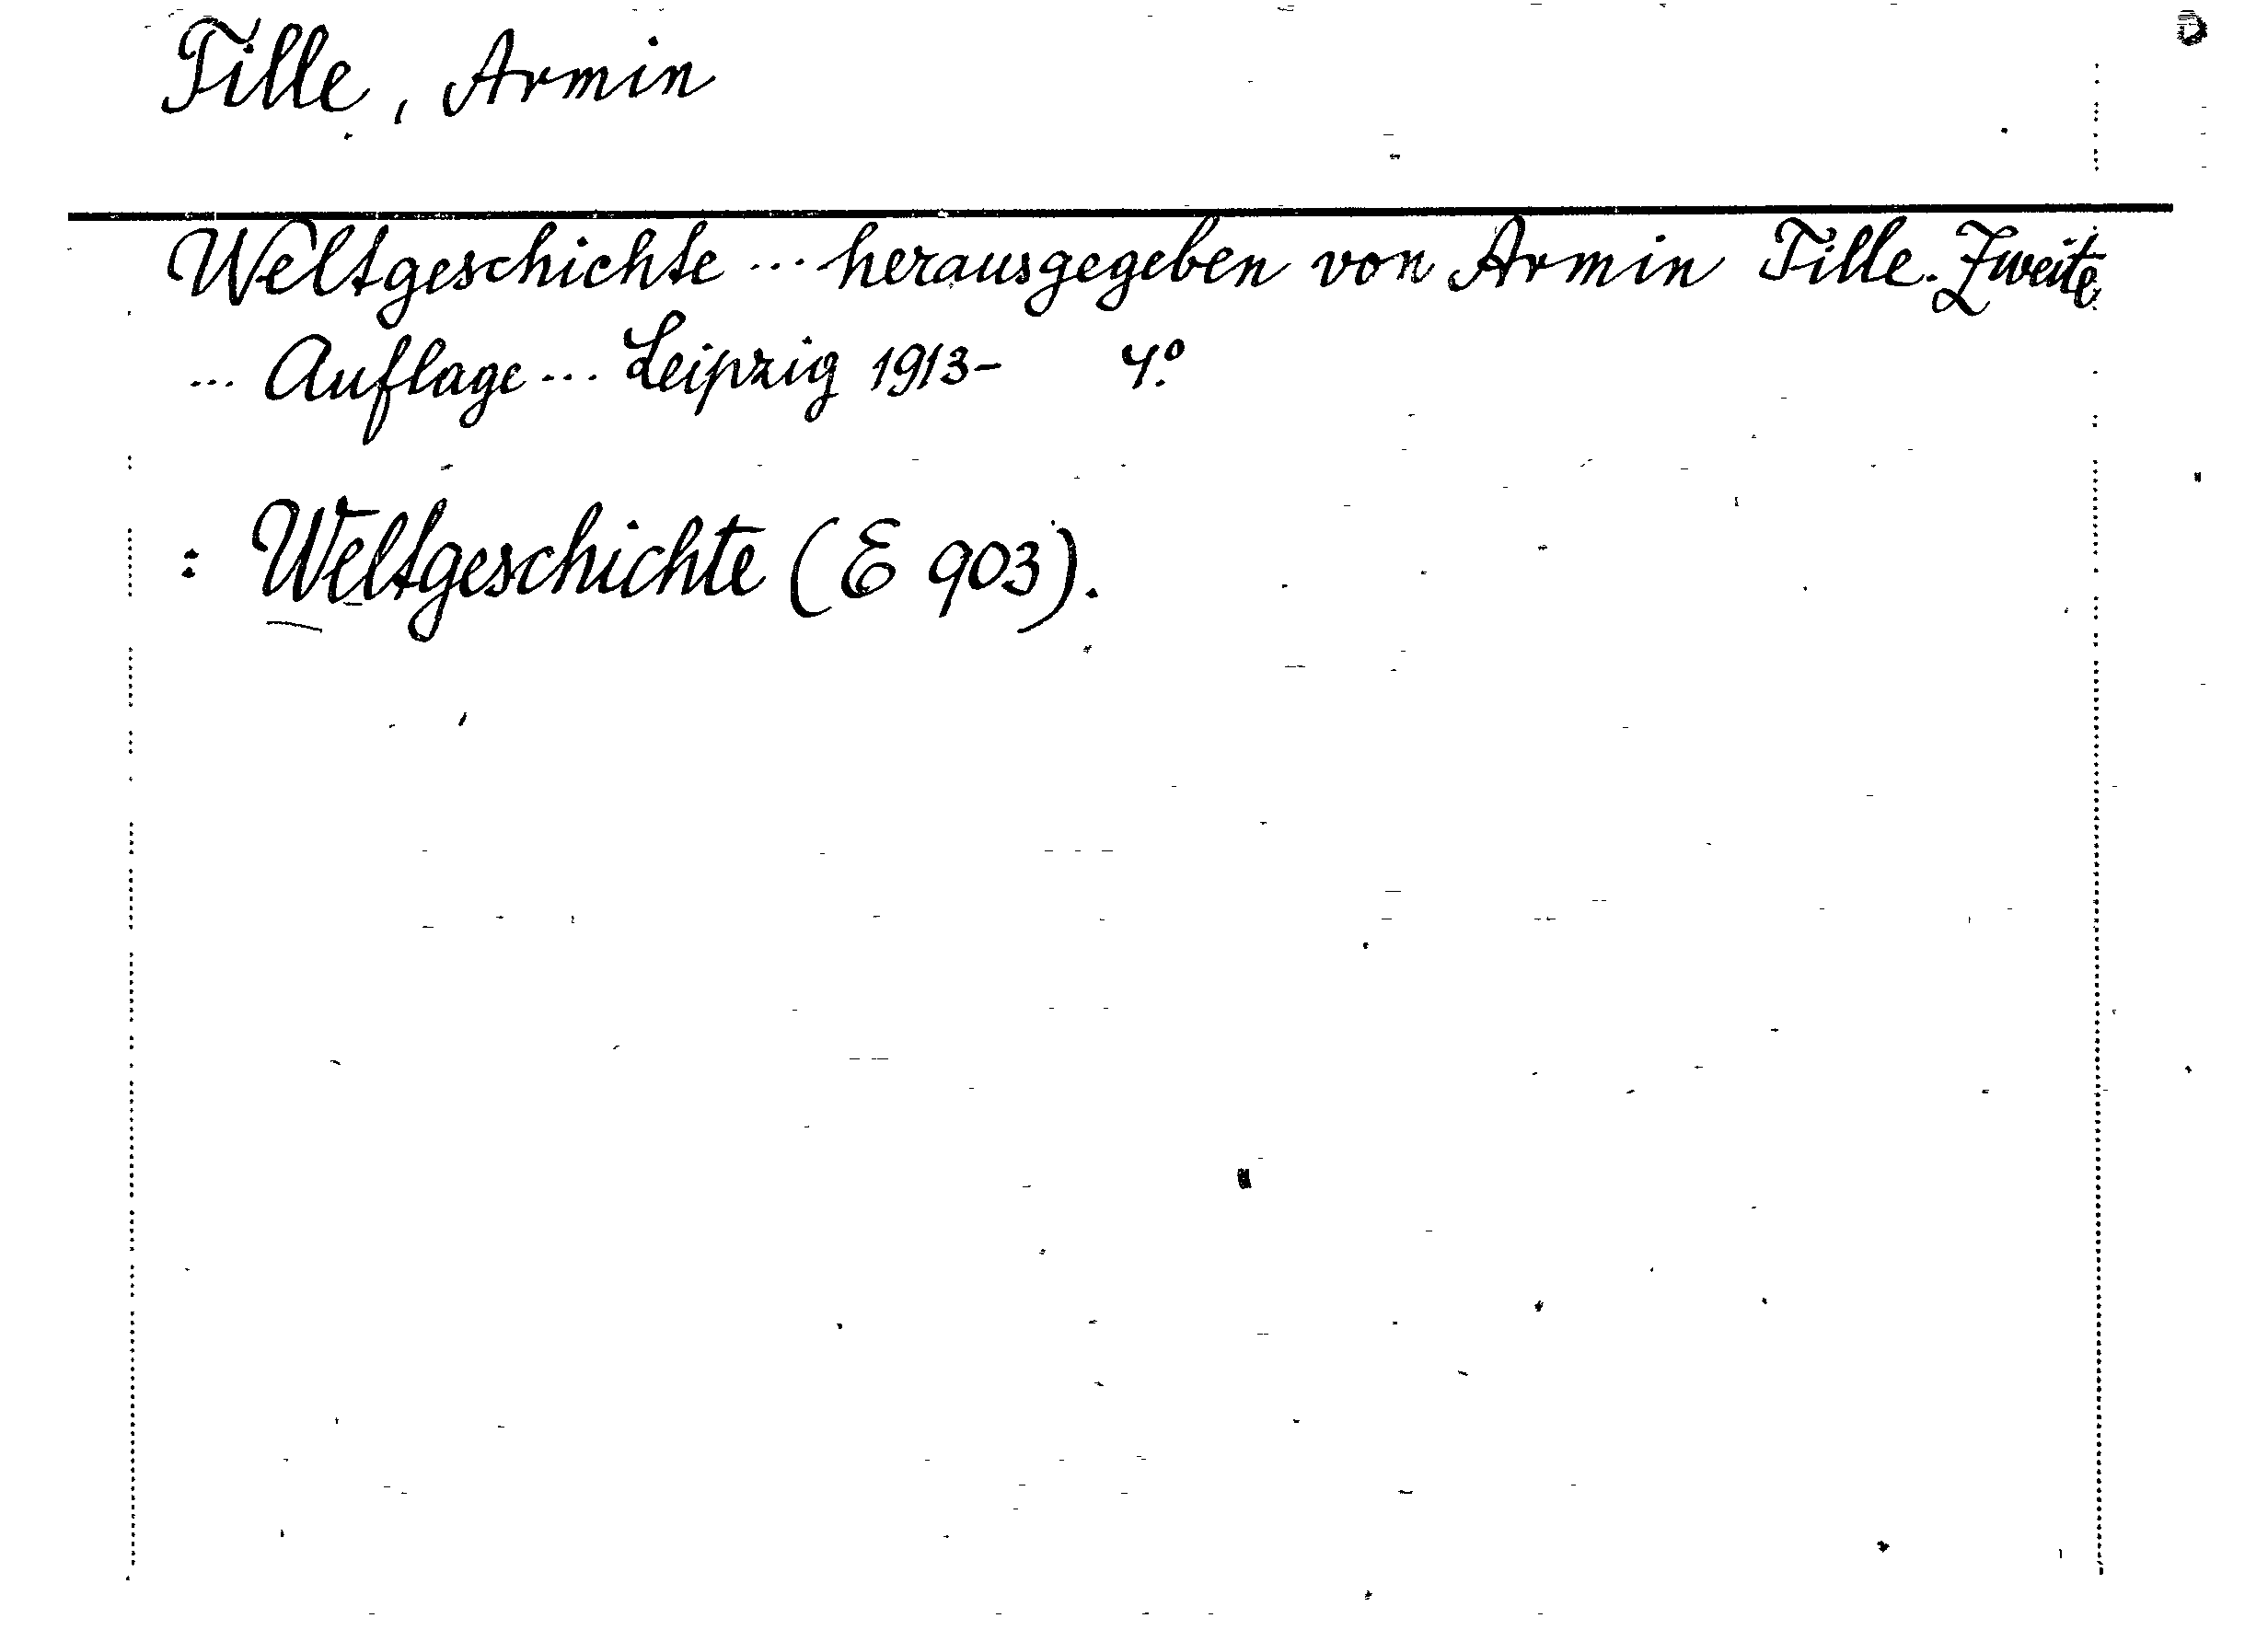 Tille, Armin
Weltgeschichte ... herausgegeben von Armin Tille. Zweite
... Auflage ... Leipzig 1913- 4.º
: Weltgeschichte (E 903).